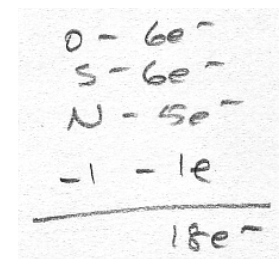 O - 6e⁻
S - 6e⁻
N - 5e⁻
-1 - 1e
18e⁻